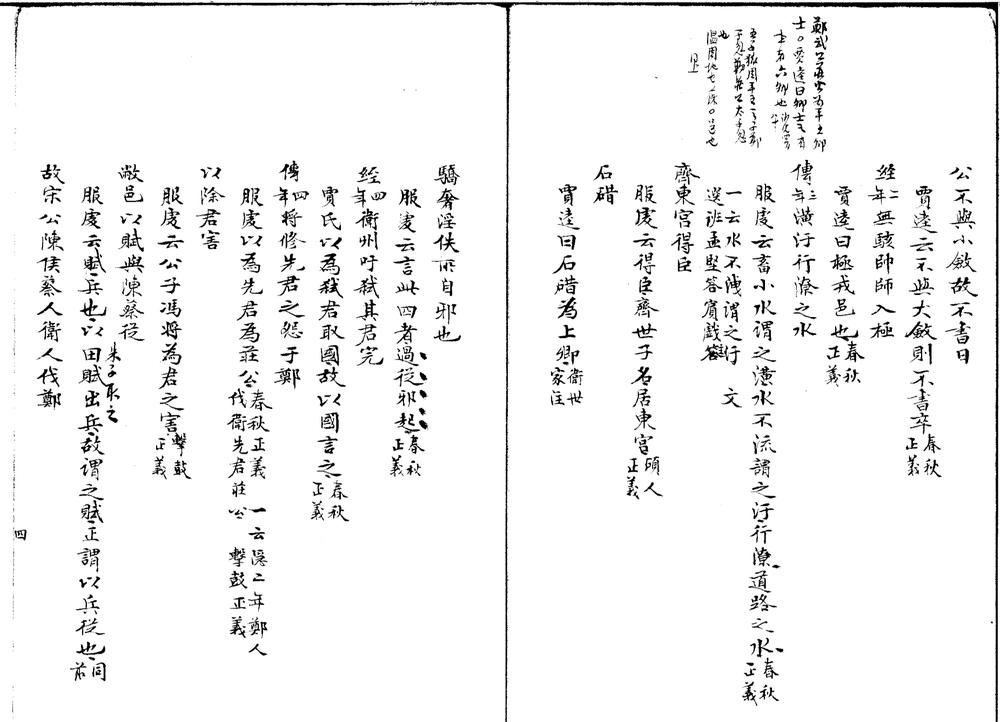 公不與小斂故不書日
賈逵云不與大斂則不書卒春秋正義
經二年無駭帥師入極
賈逵曰極戎邑也春秋正義
傳三年潢汙行潦之水
服虔云畜小水謂之潢水不流謂之汙行潦道路之水春秋正義
一云水不洩謂之汙 文選班孟堅答賓戲
齊東宮得臣
服虔云得臣齊世子名居東宮碩人正義
石碏
賈逵曰石碏為上卿衛世家注
驕奢淫佚所自邪也
服虔云言此四者過從邪起春秋正義
經四年衛州吁弒其君完
賈氏以為弒君取國故以國言之春秋正義
傳四年將修先君之怨于鄭
服虔以為先君為莊公春秋正義 一云隱二年鄭人伐衛先君莊公 擊鼓正義
以除君害
服虔云公子馮將為君之害擊鼓正義
敝邑以賦與陳蔡從
服虔云賦兵也以田賦出兵故謂之賦正謂以兵從也同前
朱子取之
故宋公陳侯蔡人衛人伐鄭
四